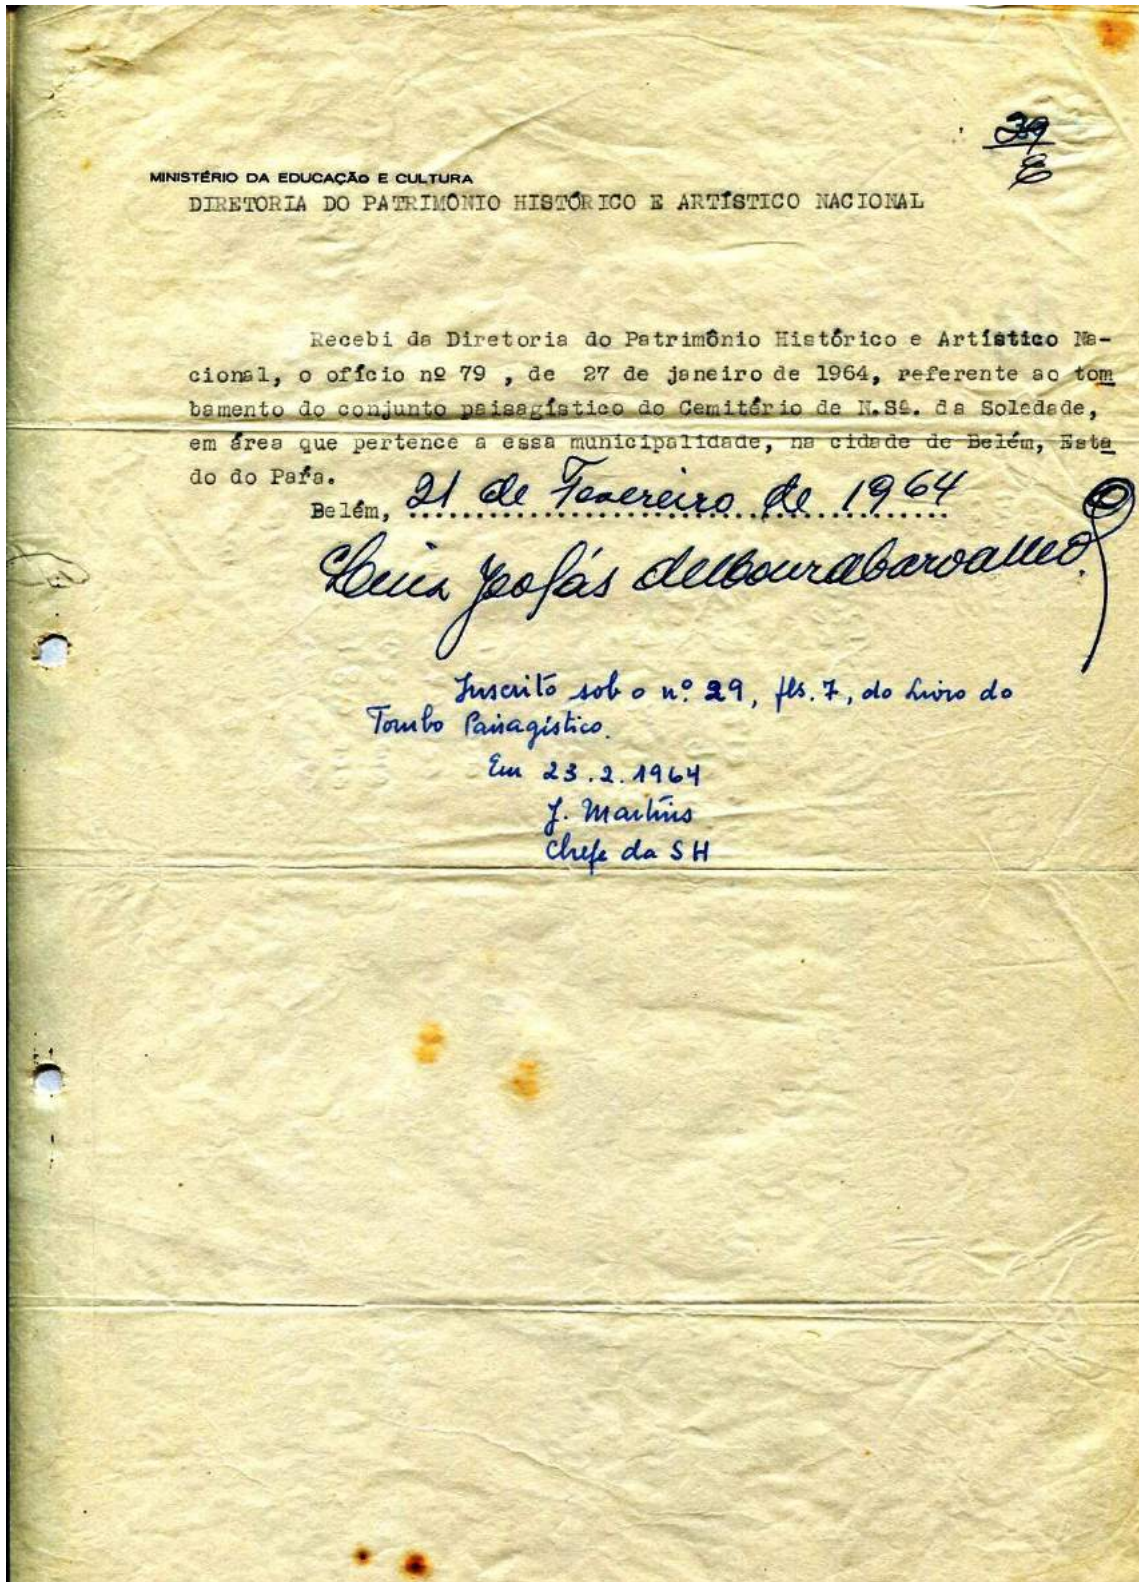 39
MINISTÉRIO DA EDUCAÇÃO E CULTURA
DIRETORIA DO PATRIMONIO HISTÓRICO E ARTÍSTICO NACIONAL
Recebi da Diretoria do Patrimônio Histórico e Artístico Na-
cional, o ofício nº 79 , de 27 de janeiro de 1964, referente ao tom
bamento do conjunto paisagístico do Cemitério de N.Sª. da Soledade,
em área que pertence a essa municipalidade, na cidade de Belém, Esta
do do Pará.
Belém, 21 de Fevereiro de 1964
Inscrito sob o nº 29, fls. 7, do Livro do
Tombo Paisagístico.
Em 23.2.1964
J. Martins
Chefe da SH